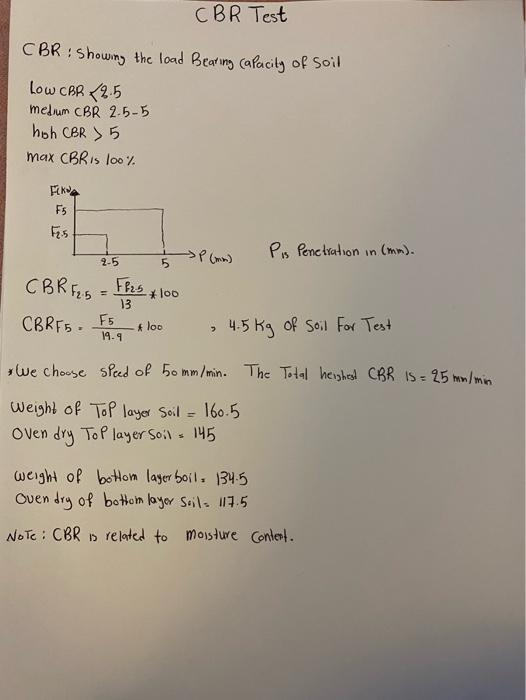 CBR Test
CBR : Showing the load Bearing Capacity of Soil
Low CBR < 2.5
medium CBR 2.5-5
high CBR > 5
max CBR is 100%
F(kN)
F5
F2.5
2.5 5 P(mm)
P is Penetration in (mm).
CBR F2.5 = FP2.5 / 13 * 100
CBRF5 = F5 / 19.9 * 100 , 4.5 Kg of Soil For Test
* We choose speed of 50 mm/min. The Total heighest CBR is = 25 mm/min
Weight of Top layer Soil = 160.5
Oven dry Top layer Soil = 145
weight of bottom layer boil = 134.5
Oven dry of bottom layer Soil = 117.5
NOTE : CBR is related to moisture Content.